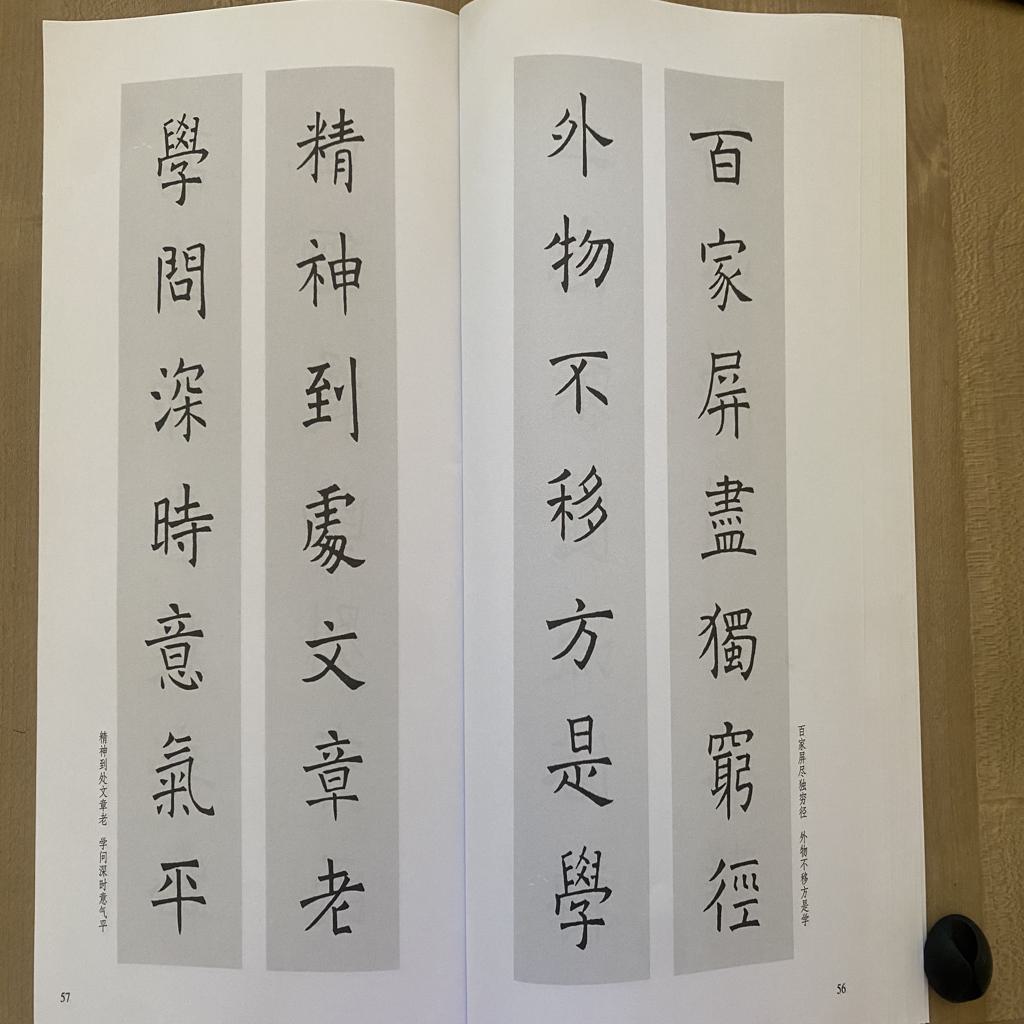 百家屏盡獨窮徑
外物不移方是學
百家屏尽独穷径 外物不移方是学
56
精神到處文章老
學問深時意氣平
精神到处文章老 学问深时意气平
57